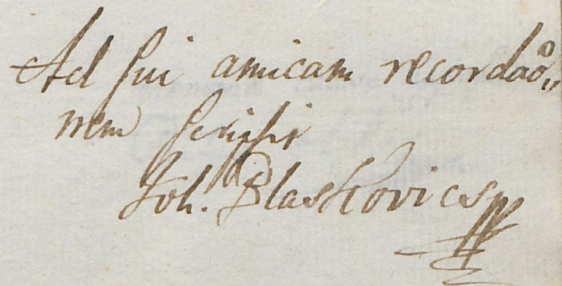 Ad sui amicam recordaõ„
nem scripsit
Joh. Blaskovics